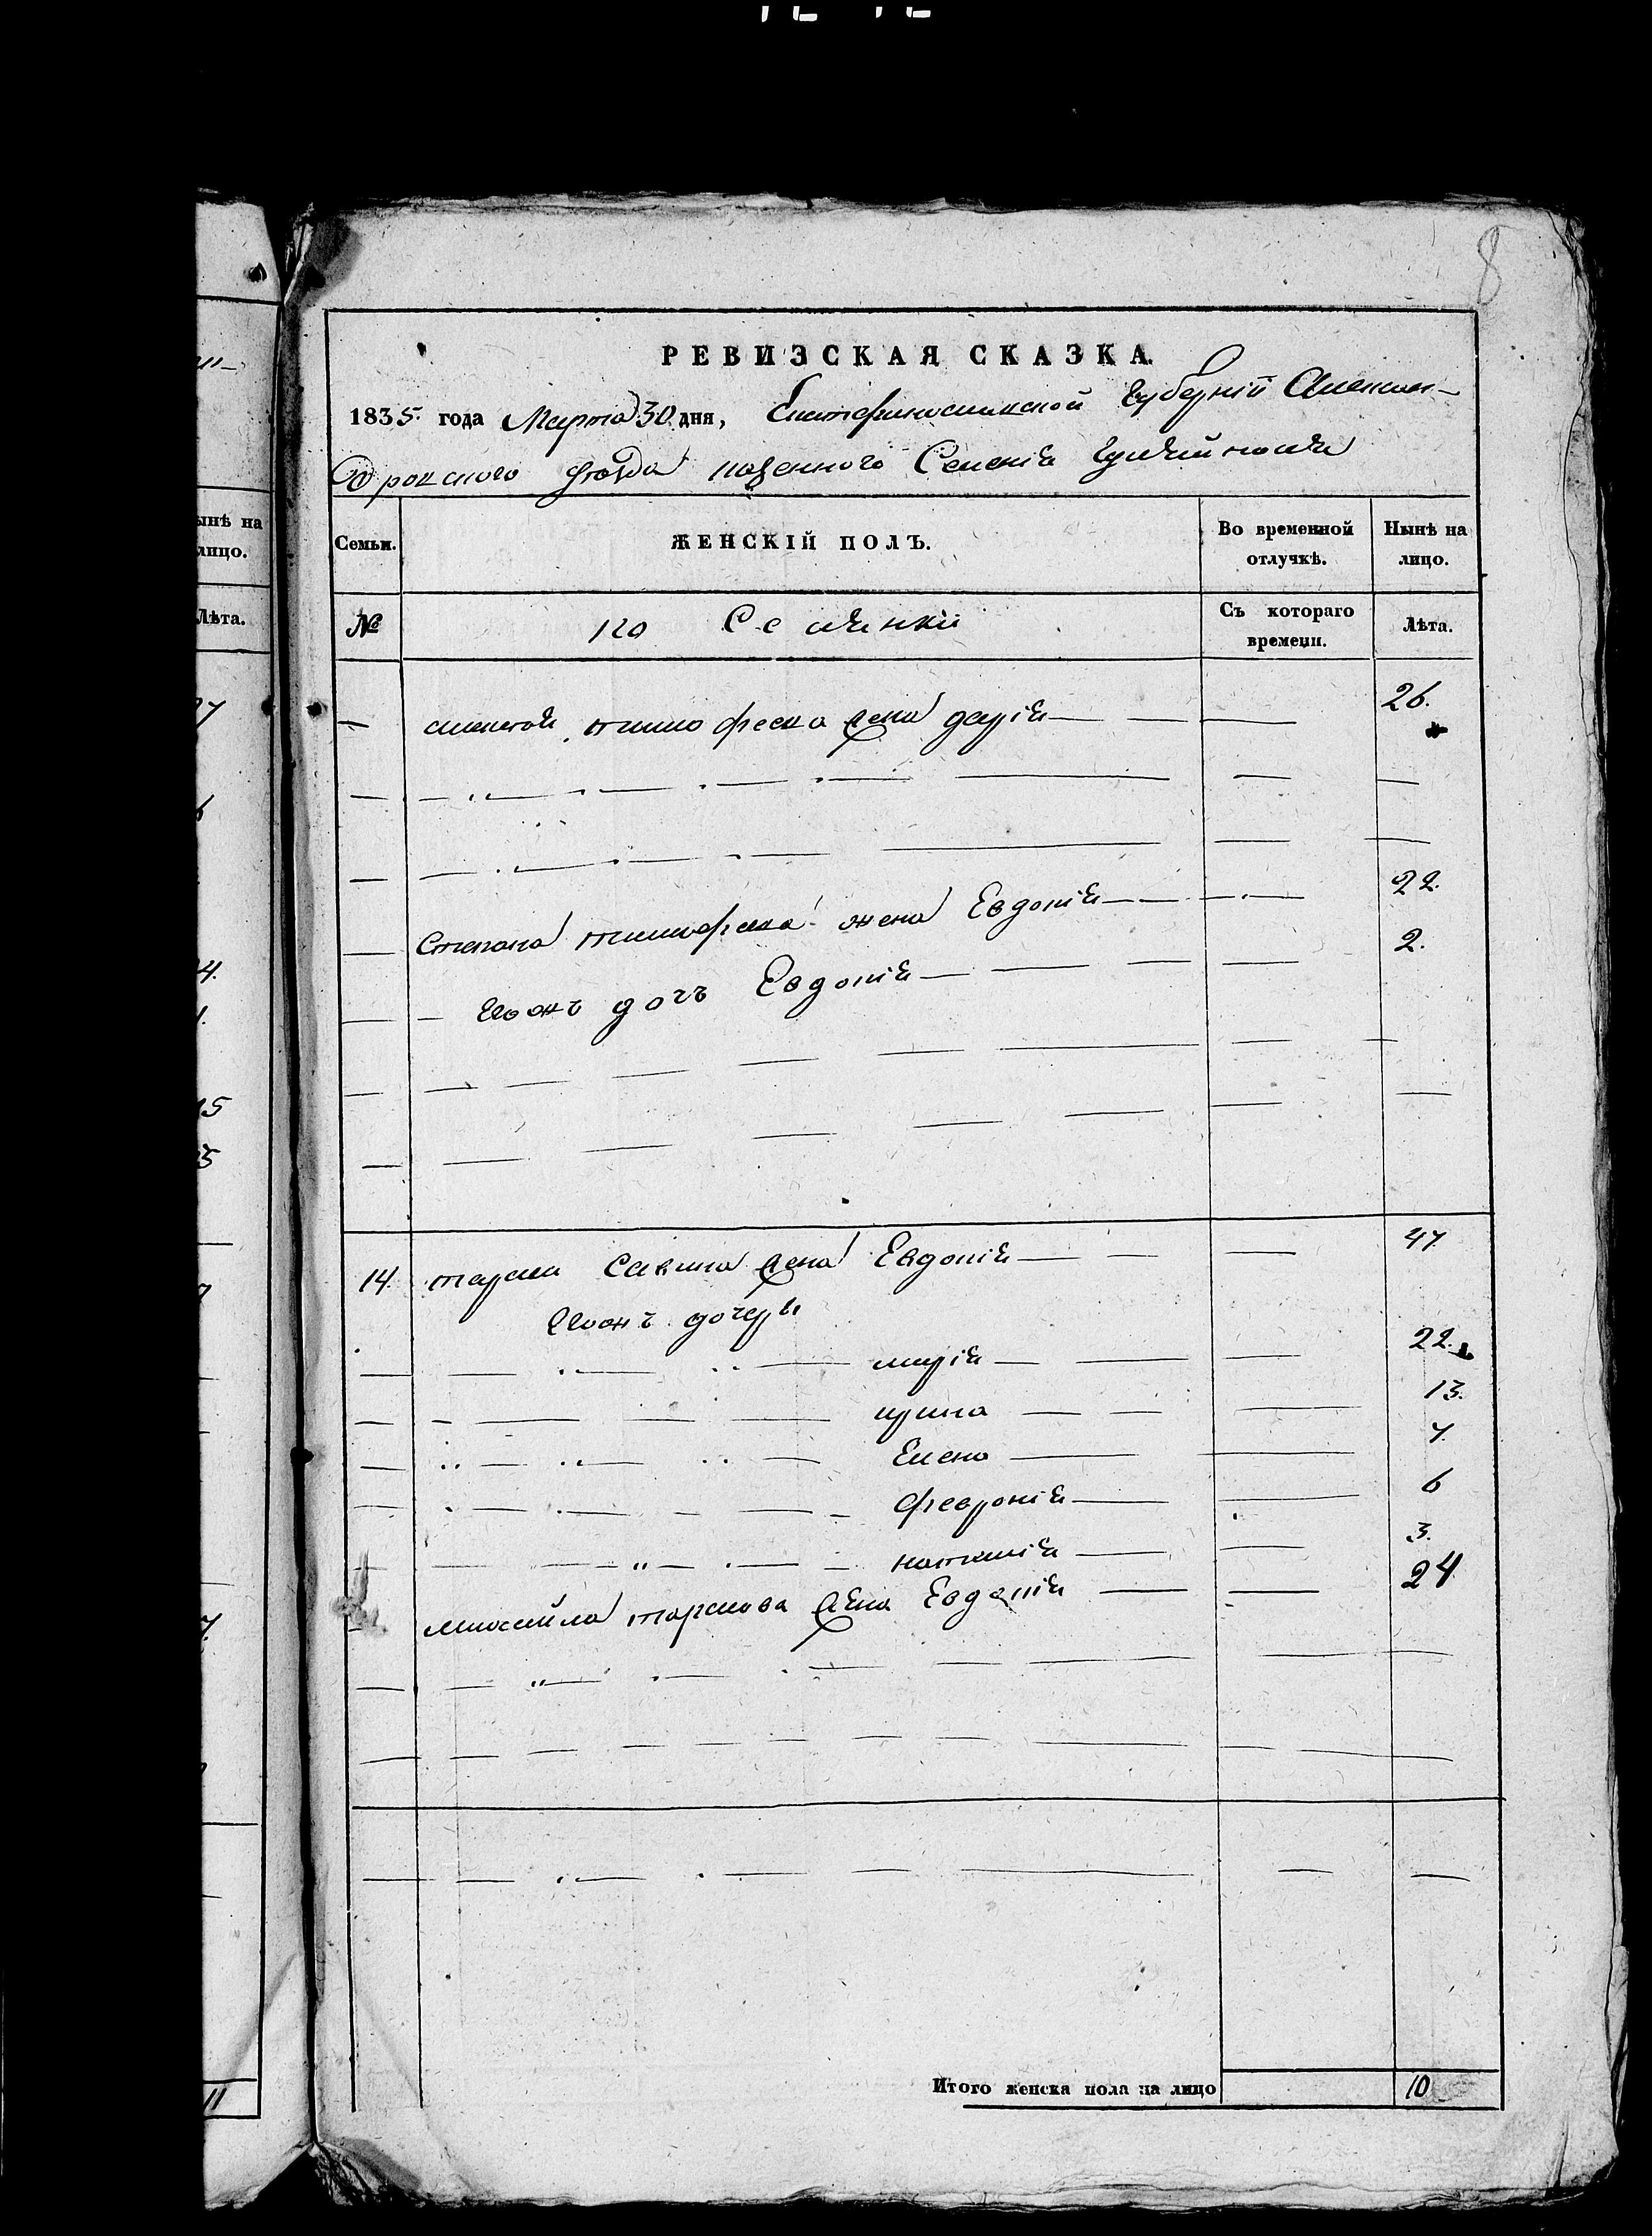 8
РЕВИЗСКАЯ СКАЗКА.
1835 года Марта 30 дня, Екатеринославской Губернии Алексан-
дровского уезда казенного Селения
Семьи. ЖЕНСКІЙ ПОЛЪ. Во временной отлучкѣ. Нынѣ на лицо.
№ Съ котораго времени. Лѣта.
тимофеева жена дарія 26.
Степана тимофеева жена Евдокія 22.
Ихъ дочь Евдокія 2.
14. тараса Савина жена Евдокія 47
Ихъ дочеры
марія 22.
ирина 13.
Елена 7.
Февронія 6
наталія 3.
михайла тарасова жена Евдокія 24
Итого женска пола на лицо 10
ынѣ на
лицо.
Лѣта.
11